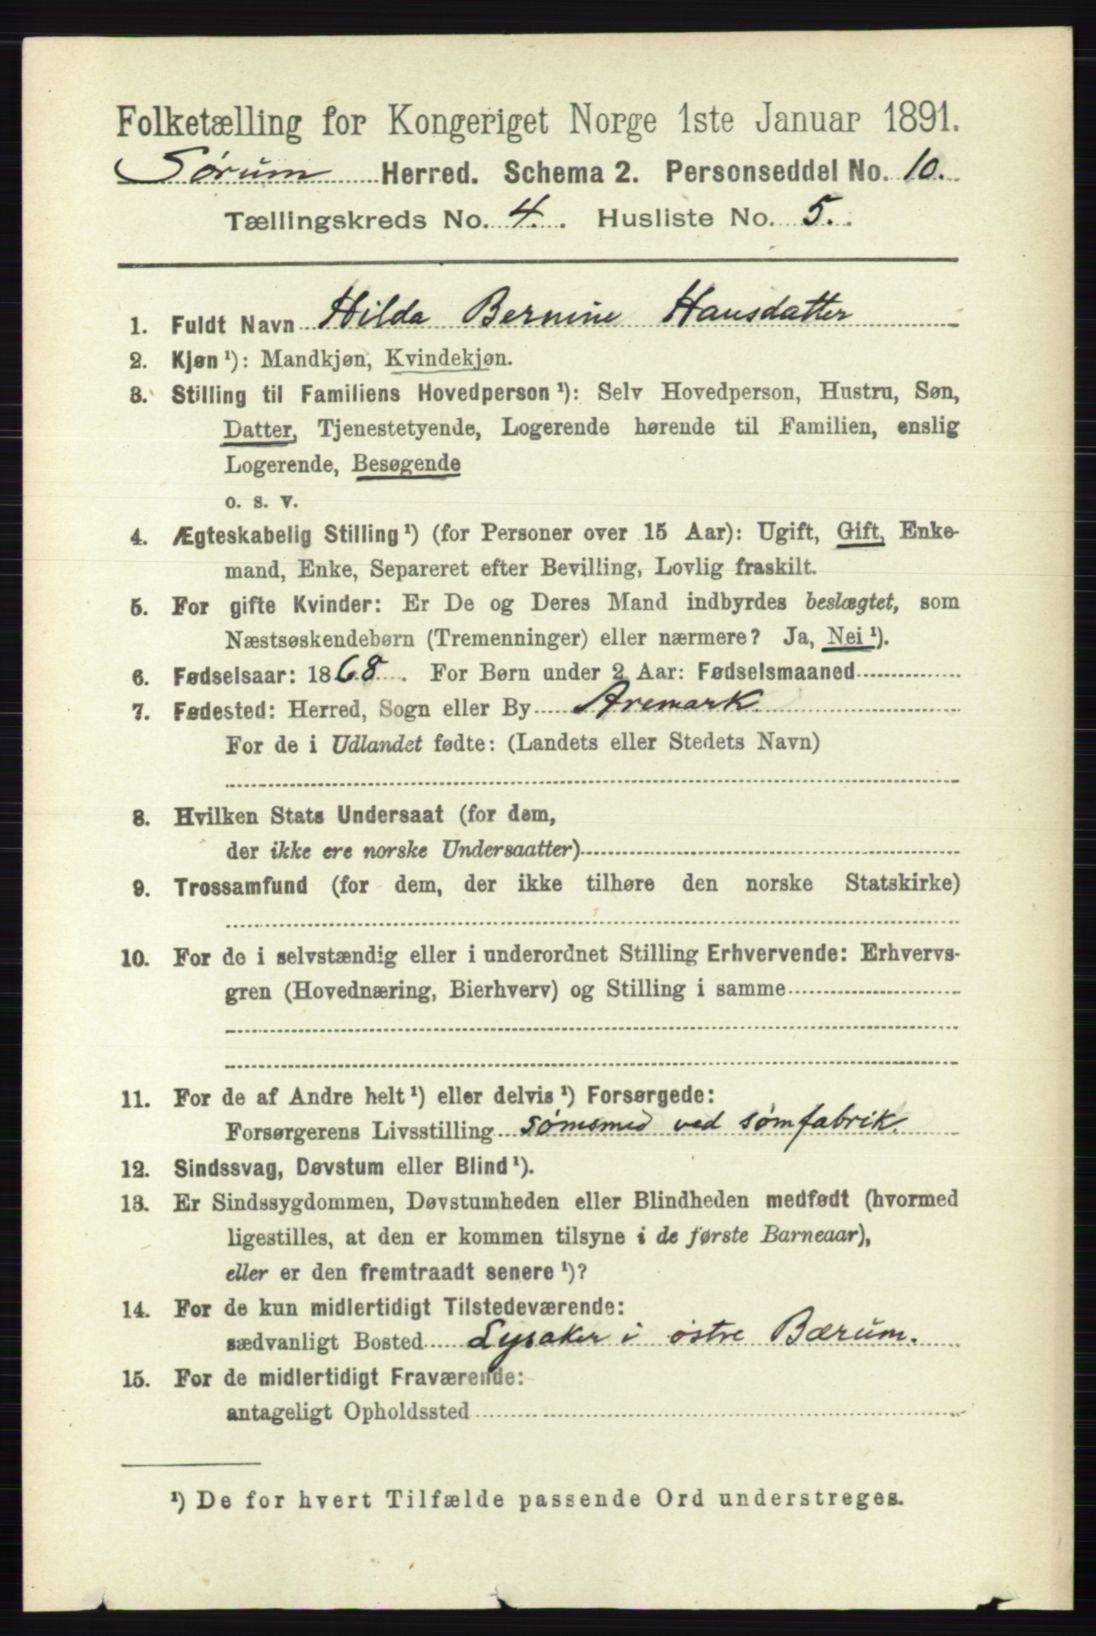 Folketælling for Kongeriget Norge 1ste Januar 1891.
Sørum Herred. Schema 2. Personseddel No. 10.
Tællingskreds No. 4. Husliste No. 5.
1. Fuldt Navn Hilda Bernine Hansdatter
2. Kjøn ¹): Mandkjøn, Kvindekjøn.
3. Stilling til Familiens Hovedperson ¹): Selv Hovedperson, Hustru, Søn,
Datter, Tjenestetyende, Logerende hørende til Familien, enslig
Logerende, Besøgende
o. s. v.
4. Ægteskabelig Stilling ¹) (for Personer over 15 Aar): Ugift, Gift, Enke-
mand, Enke, Separeret efter Bevilling, Lovlig fraskilt.
5. For gifte Kvinder: Er De og Deres Mand indbyrdes beslægtet, som
Næstsøskendebørn (Tremenninger) eller nærmere? Ja, Nei ¹).
6. Fødselsaar: 1868. For Børn under 2 Aar: Fødselsmaaned
7. Fødested: Herred, Sogn eller By Aremark.
For de i Udlandet fødte: (Landets eller Stedets Navn)
8. Hvilken Stats Undersaat (for dem,
der ikke ere norske Undersaatter)
9. Trossamfund (for dem, der ikke tilhøre den norske Statskirke)
10. For de i selvstændig eller i underordnet Stilling Erhvervende: Erhvervs-
gren (Hovednæring, Bierhverv) og Stilling i samme
11. For de af Andre helt ¹) eller delvis ¹) Forsørgede:
Forsørgerens Livsstilling sømsmed ved sømfabrik.
12. Sindssvag, Døvstum eller Blind ¹).
13. Er Sindssygdommen, Døvstumheden eller Blindheden medfødt (hvormed
ligestilles, at den er kommen tilsyne i de første Barneaar),
eller er den fremtraadt senere ¹)?
14. For de kun midlertidigt Tilstedeværende:
sædvanligt Bosted Lysaker i østre Bærum.
15. For de midlertidigt Fraværende:
antageligt Opholdssted
¹) De for hvert Tilfælde passende Ord understreges.